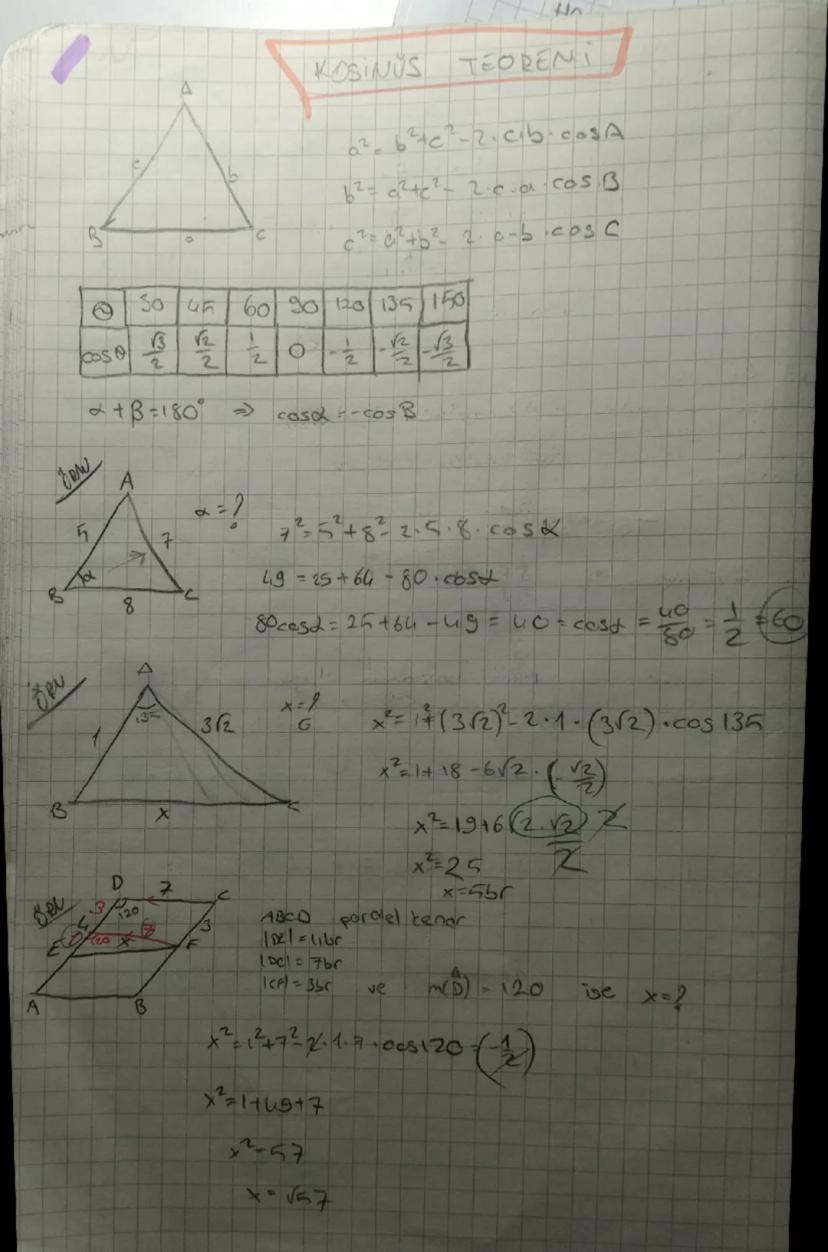 KOSİNÜS TEOREMİ
A
c
b
B
a
C
a² = b²+c²-2·c·b·cosA
b² = a²+c²- 2·c·a·cosB
c² = a²+b²- 2·a·b·cosC
θ 30 45 60 90 120 135 150
cosθ √3/2 √2/2 1/2 0 -1/2 -√2/2 -√3/2
α+β=180° ⇒ cosα=-cosB
ÖRN
A
α=?
5
7
B
α
C
8
7²=5²+8²-2·5·8·cosα
49=25+64-80·cosα
80cosα=25+64-49=40=cosα=40/80=1/2=60
ÖRN
A
135
1
3√2
x=?
B
x
C
x²=1²+(3√2)²-2·1·(3√2)·cos135
x²=1+18-6√2·(-√2/2)
x²=19+6
x²=25
x=5br
ÖRN
D
7
C
3
120
4
3
1
120
x
7
E
F
A
B
ABCD paralel kenar
|DE|=4br
|DC|=7br
|CF|=3br ve m(D̂)=120 ise x=?
x²=1²+7²-2·1·7·cos120=(-1/2)
x²=1+49+7
x²=57
x=√57